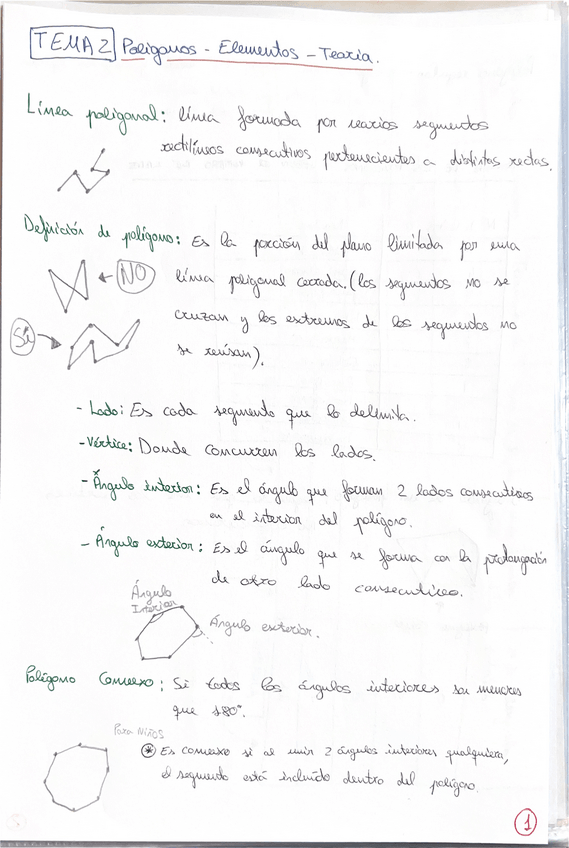 TEMA 2 Polígonos - Elementos - Teoría.
Línea poligonal: línea formada por varios segmentos
rectilíneos consecutivos pertenecientes a distintas rectas.
Definición de polígono: Es la porción del plano limitada por una
NO
línea poligonal cerrada. (los segmentos no se
Sí
cruzan y los extremos de los segmentos no
se).
- Lado: Es cada segmento que lo delimita.
- Vértice: Donde concurren los lados.
- Ángulo interior: Es el ángulo que forman 2 lados consecutivos
en el interior del polígono.
- Ángulo exterior: Es el ángulo que se forma con la prolongación
de otro lado consecutivo.
Ángulo
Interior
Ángulo exterior.
Polígono Convexo: Si todos los ángulos interiores son menores
que 180°.
Para Niños
* Es convexo si al unir 2 ángulos interiores cualquiera,
el segmento está incluido dentro del polígono.
1